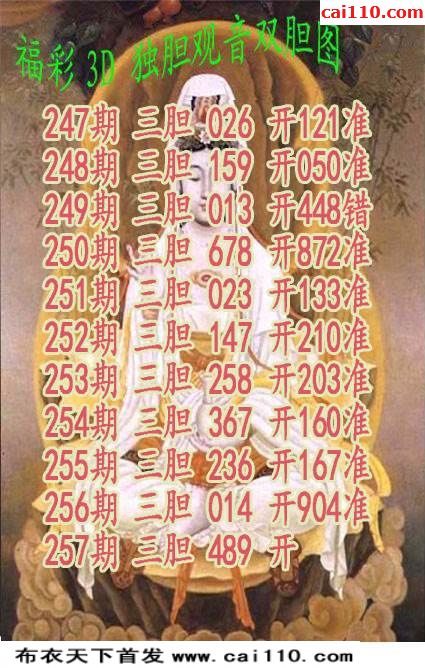 彩民乐
cai110.com
福彩3D 独胆观音双胆图
247期 三胆 026 开121准
248期 三胆 159 开050准
249期 三胆 013 开448错
250期 三胆 678 开872准
251期 三胆 023 开133准
252期 三胆 147 开210准
253期 三胆 258 开203准
254期 三胆 367 开160准
255期 三胆 236 开167准
256期 三胆 014 开904准
257期 三胆 489 开
布衣天下首发 www.cai110.com